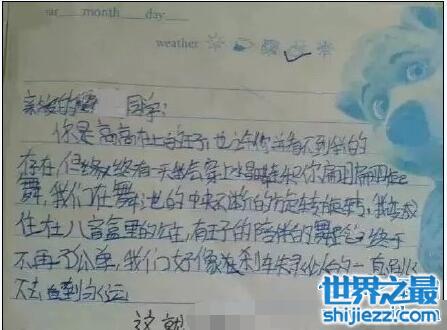 ear month day
weather
亲爱的 同学:
你是高高在上的王子,也许你并看不到我的
存在,但我终有一天会穿上水晶鞋和你翩翩起
舞,我们在舞池的中央不断的旋转旋转,我
住在八音盒里的公主,有王子的陪伴的舞终于
不再孤单,我们好像
不去 到永远
这就
世界之最
www.shijiezzl.com